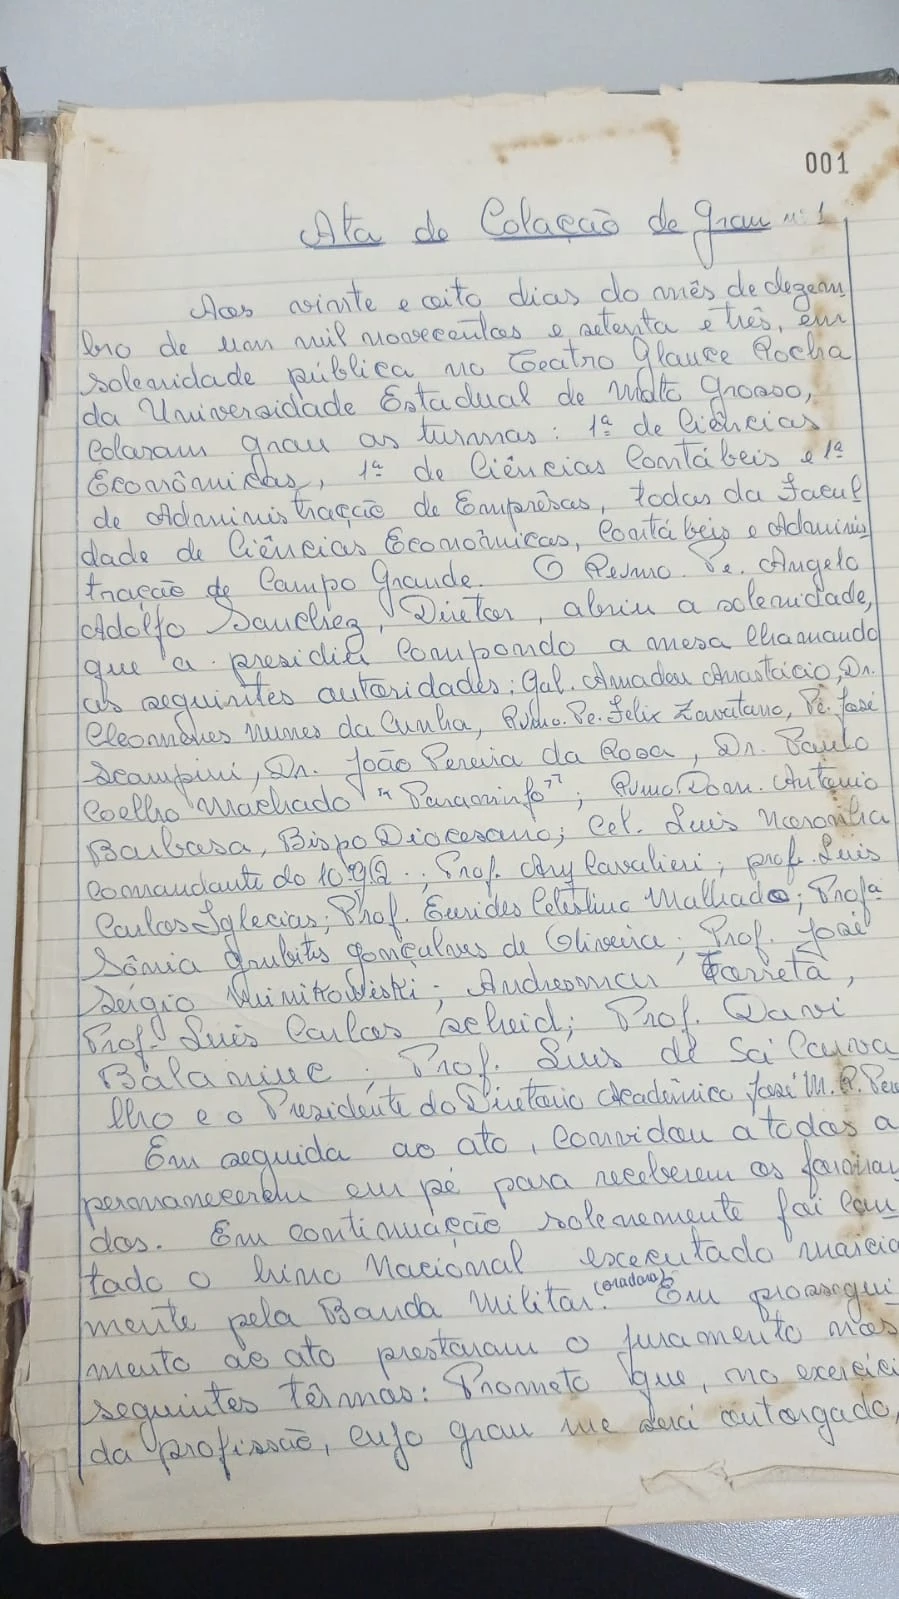 001
Ata de Colação de Grau nº 1
Aos vinte e oito dias do mês de dezem
bro de um mil novecentos e setenta e três, em
solenidade pública no Teatro Glauce Rocha
da Universidade Estadual de Mato Grosso,
Colaram grau as turmas: 1ª de Ciências
Econômicas, 1ª de Ciências Contábeis e 1ª
de Administração de Emprêsas, todas da Facul
dade de Ciências Econômicas, Contábeis e Adminis
tração de Campo Grande. O Revmo. Pe. Angelo
Adolfo Sanchez, Diretor, abriu a solenidade,
que a presidiu compondo a mesa chamando
as seguintes autoridades: Gal. Amadeu Anastácio, Dr.
Cleomenes Nunes da Cunha, Rvmo. Pe. Felix Zavatano, Pe. José
Scampini, Dr. João Pereira da Rosa, Dr. Paulo
Coelho Machado "Paraninfo"; Rvmo Dom. Antonio
Barbosa, Bispo Diocesano; Cel. Luis Noronha
Comandante do; Prof. Ary Cavalieri; prof. Luis
Carlos Iglecias; Prof. Eurides Celestino Malhado; Profª
Sônia Grubits Gonçalves de Oliveira; Prof. José
Sérgio; Andreomar;
Prof. Luis Carlos Scheid; Prof. Davi
Balamiuc; Prof. Luis de Sá Carva
lho e o Presidente do Diretorio Acadêmico José M. R.
Em seguida ao ato, convidou a todos a
permanecerem em pé para receberem os forman
dos. Em continuação solenemente foi can
tado o hino Nacional executado marcia
mente pela Banda Militar. (oradora) Em prossegui
mento ao ato prestaram o juramento nos
seguintes têrmos: Prometo que, no exercíci
da profissão, cujo grau me será outorgado,